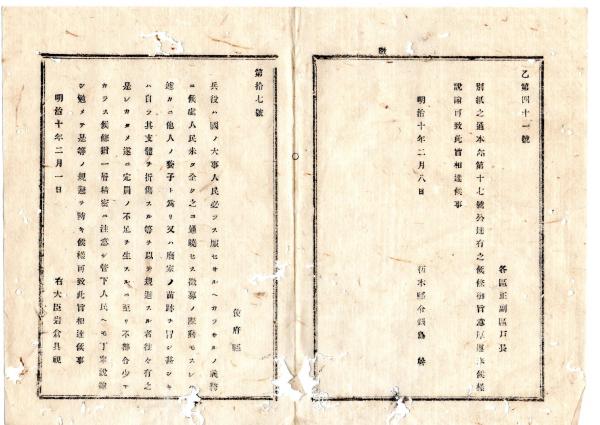 乙第四十一號
各區正副區戸長
別紙之通本年第十七號外達有之候條御旨意厚 候様
説諭可致此旨相達候事
明治十年二月八日
栃木縣令鍋島 幹
第拾七號
使府縣
兵役ハ國ノ大事人民必ラス服セサルヘカラサルノ義務
ニ候處人民未タ全ク之ニ通曉セス徴募ノ際動モスレハ
遽カニ他人ノ養子ト爲リ又ハ廢家ノ苗跡ヲ冒シ甚シキ
ハ自ラ其支體ヲ折傷スル等ヲ以テ規避スル者往々有之
是レカタメ遂ニ定員ノ不足ヲ生スルニ至リ不都合少ナ
カラス候條猶一層精密ニ注意シ管下人民ヘモ丁寧説諭
シ勉メテ是等ノ規避ヲ防キ候様可致此旨相達候事
明治十年二月一日
右大臣岩倉具視